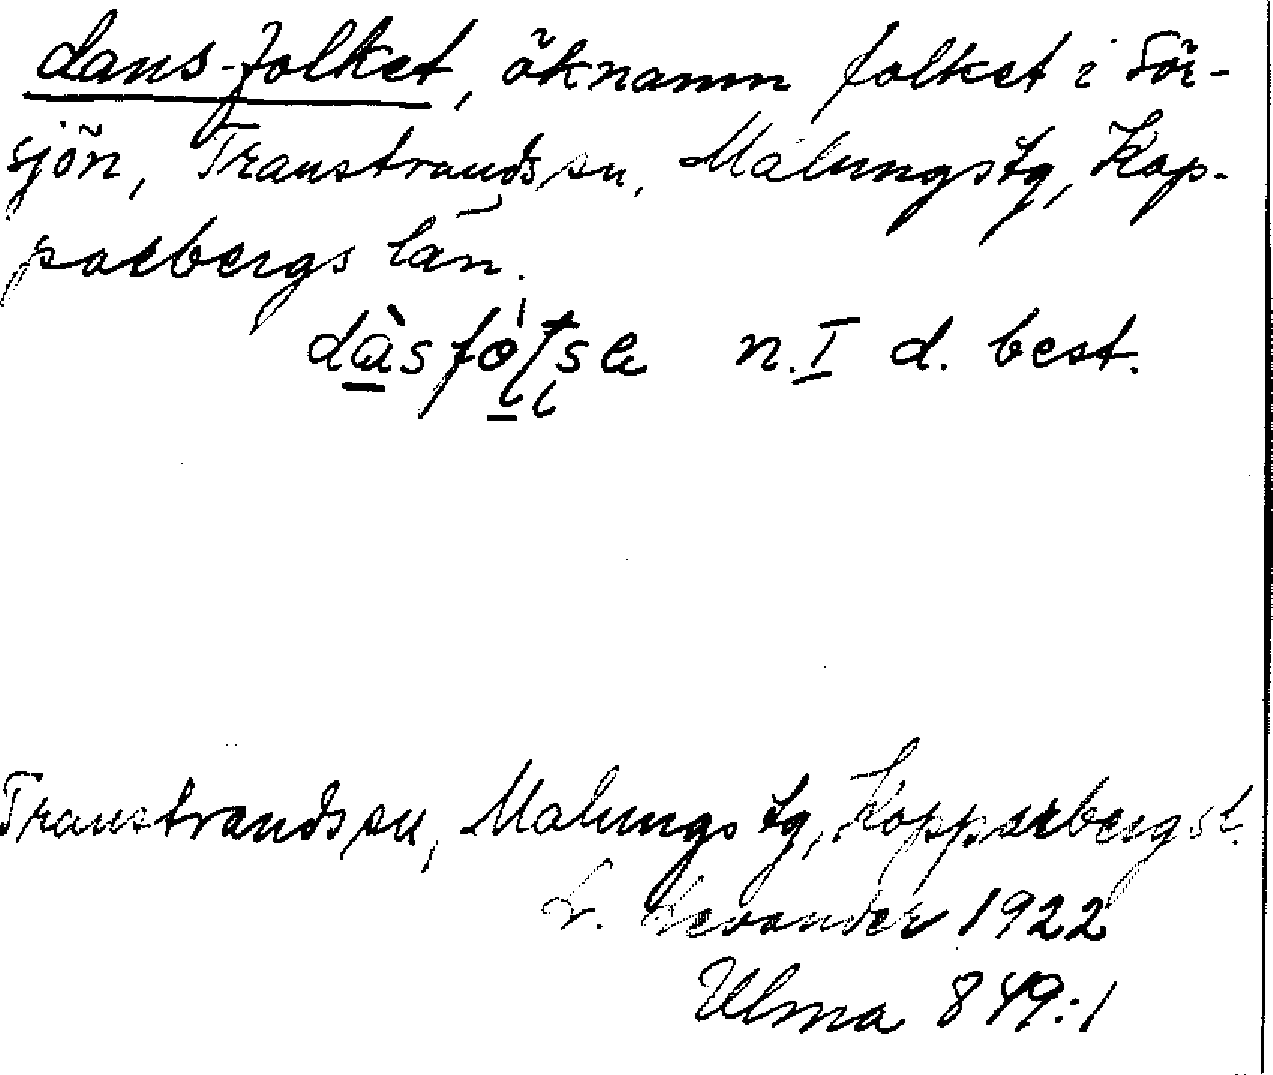 dans-folket, öknamn folket i Sör-
sjön, Transtrands sn, Malungs tg, Kop-
parbergs län.
n. I d. best.
Transtrands sn, Malungs tg, Kopparbergs l.
L. Levander 1922
Ulma 849:1